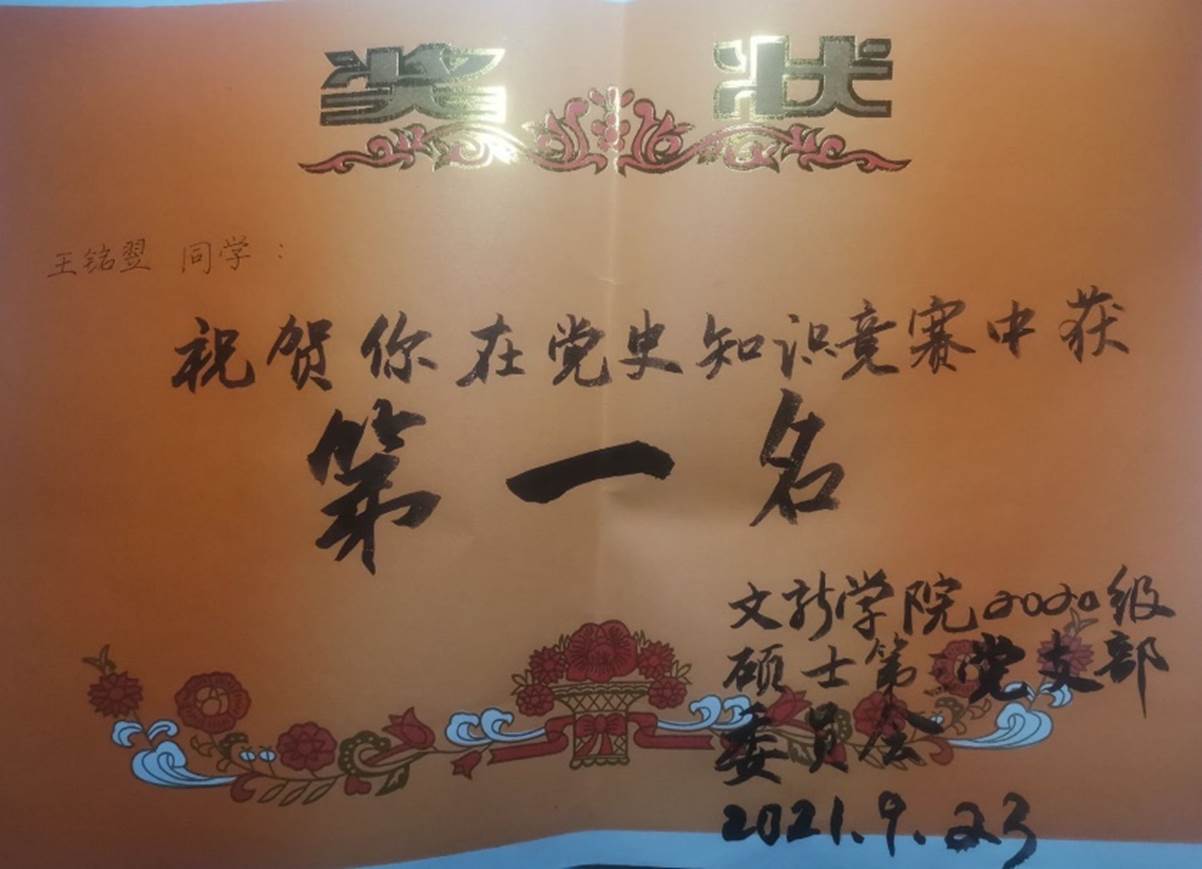 奖状
王铭翌 同学：
祝贺你在党史知识竞赛中获
第一名
文新学院2020级
硕士第 党支部
委员会
2021.9.23